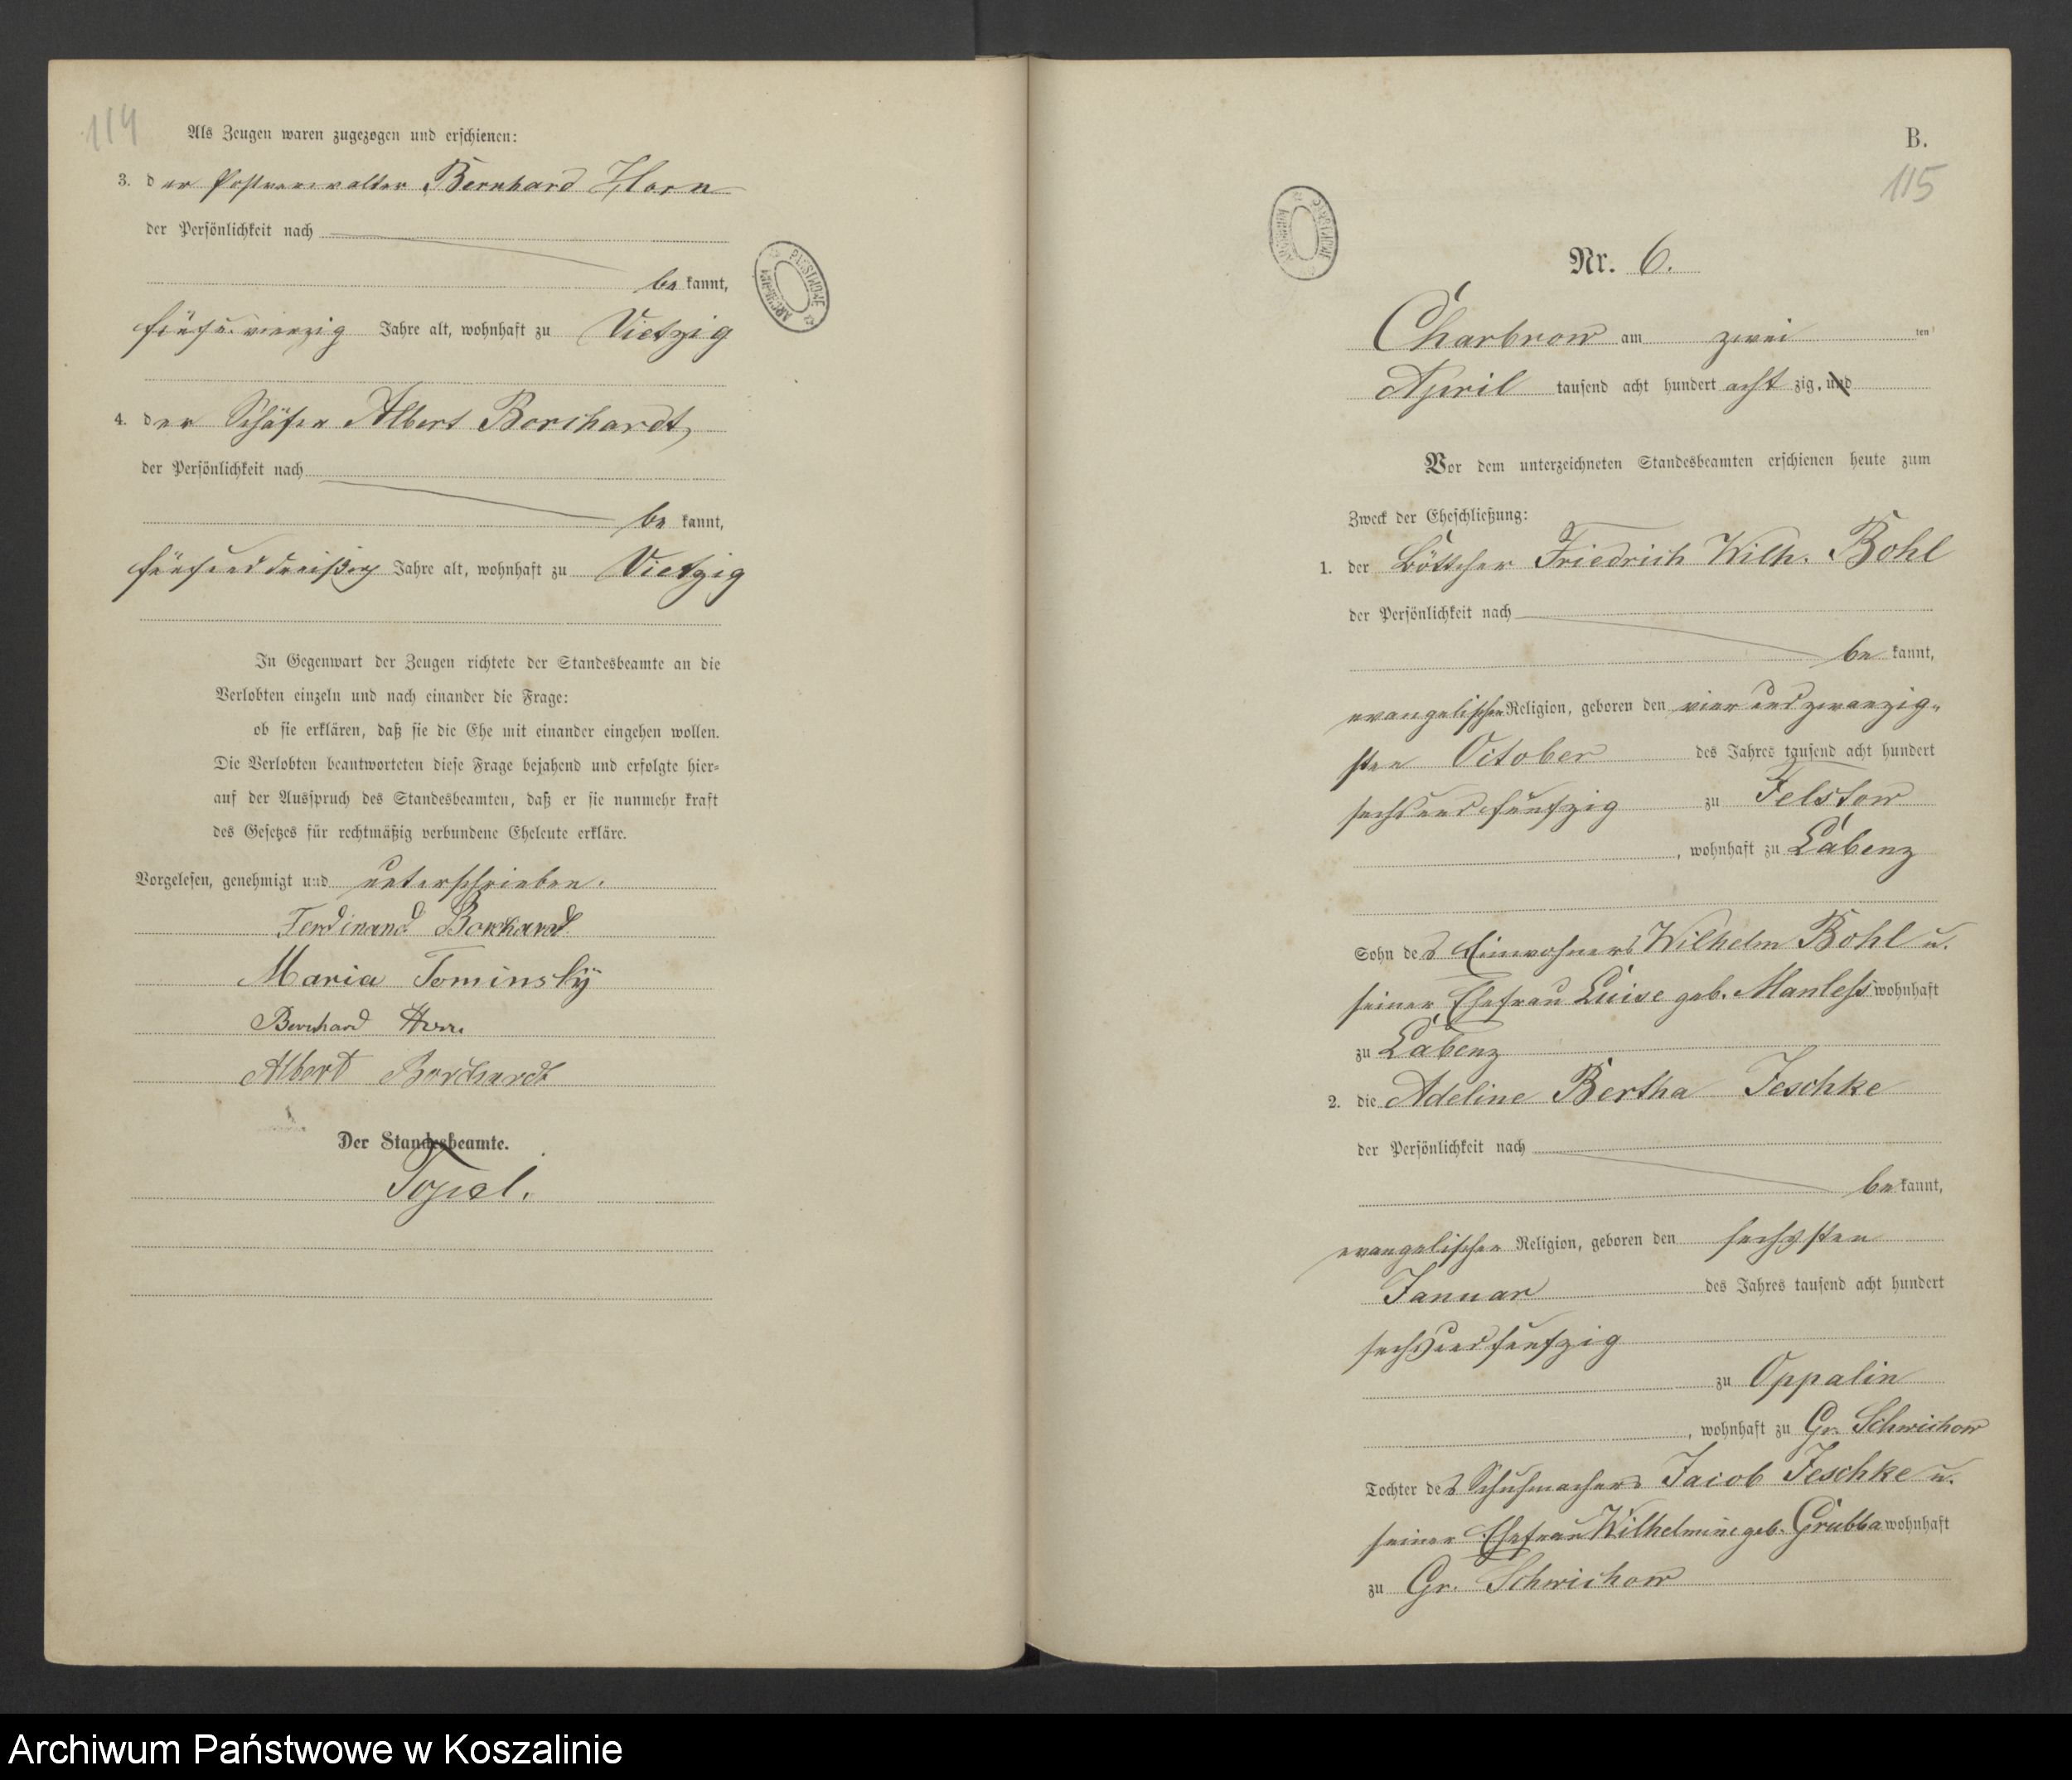 114
Als Zeugen waren zugezogen und erschienen:
3. der Postverwalter Bernhard Horn
der Persönlichkeit nach
be kannt,
fünfu.vierzig Jahre alt, wohnhaft zu Vietzig
4. der Schäfer Albert Borchardt,
der Persönlichkeit nach
be kannt,
fünfunddreißig Jahre alt, wohnhaft zu Vietzig
In Gegenwart der Zeugen richtete der Standesbeamte an die
Verlobten einzeln und nach einander die Frage:
ob sie erklären, daß sie die Ehe mit einander eingehen wollen.
Die Verlobten beantworteten diese Frage bejahend und erfolgte hier-
auf der Ausspruch des Standesbeamten, daß er sie nunmehr kraft
des Gesetzes für rechtmäßig verbundene Eheleute erkläre.
Vorgelesen, genehmigt und unterschrieben.
Ferdinand Borchardt
Maria Tominsky
Bernhard Horn.
Albert Borchardt
Der Standesbeamte.
ARCHIWUM PAŃSTWOWE
B.
115
Nr. 6.
Charbrow am zwei ten
April tausend acht hundert acht zig, und
Vor dem unterzeichneten Standesbeamten erschienen heute zum
Zweck der Eheschließung:
1. der Böttcher Friedrich Wilh. Bohl
der Persönlichkeit nach
be kannt,
evangelischer Religion, geboren den vier und zwanzig-
sten October des Jahres tausend acht hundert
sechsundfünfzig zu Felstow
, wohnhaft zu Labenz
Sohn des Einwohners Wilhelm Bohl u.
seiner Ehefrau Luise geb. Manless wohnhaft
zu Labenz
2. die Adeline Bertha Jeschke
der Persönlichkeit nach
be kannt,
evangelischer Religion, geboren den sechsten
Januar des Jahres tausend acht hundert
sechsundfünfzig
zu Oppalin
, wohnhaft zu Gr. Schwichow
Tochter des Schuhmachers Jacob Jeschke u.
seiner Ehefrau Wilhelmine geb. Grubba wohnhaft
zu Gr. Schwichow
Archiwum Państwowe w Koszalinie